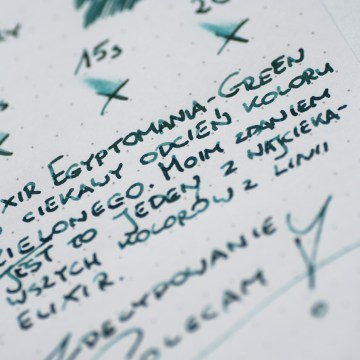 15s
20
XIR EGYPTOMANIA-GREEN
CIEKAWY ODCIEŃ KOLORU
ZIELONEGO. MOIM ZDANIEM
JEST TO JEDEN Z NAJCIEKA-
WSZYCH KOLORÓW Z LINII
ELIXIR.
ZDECYDOWANIE
POLECAM!